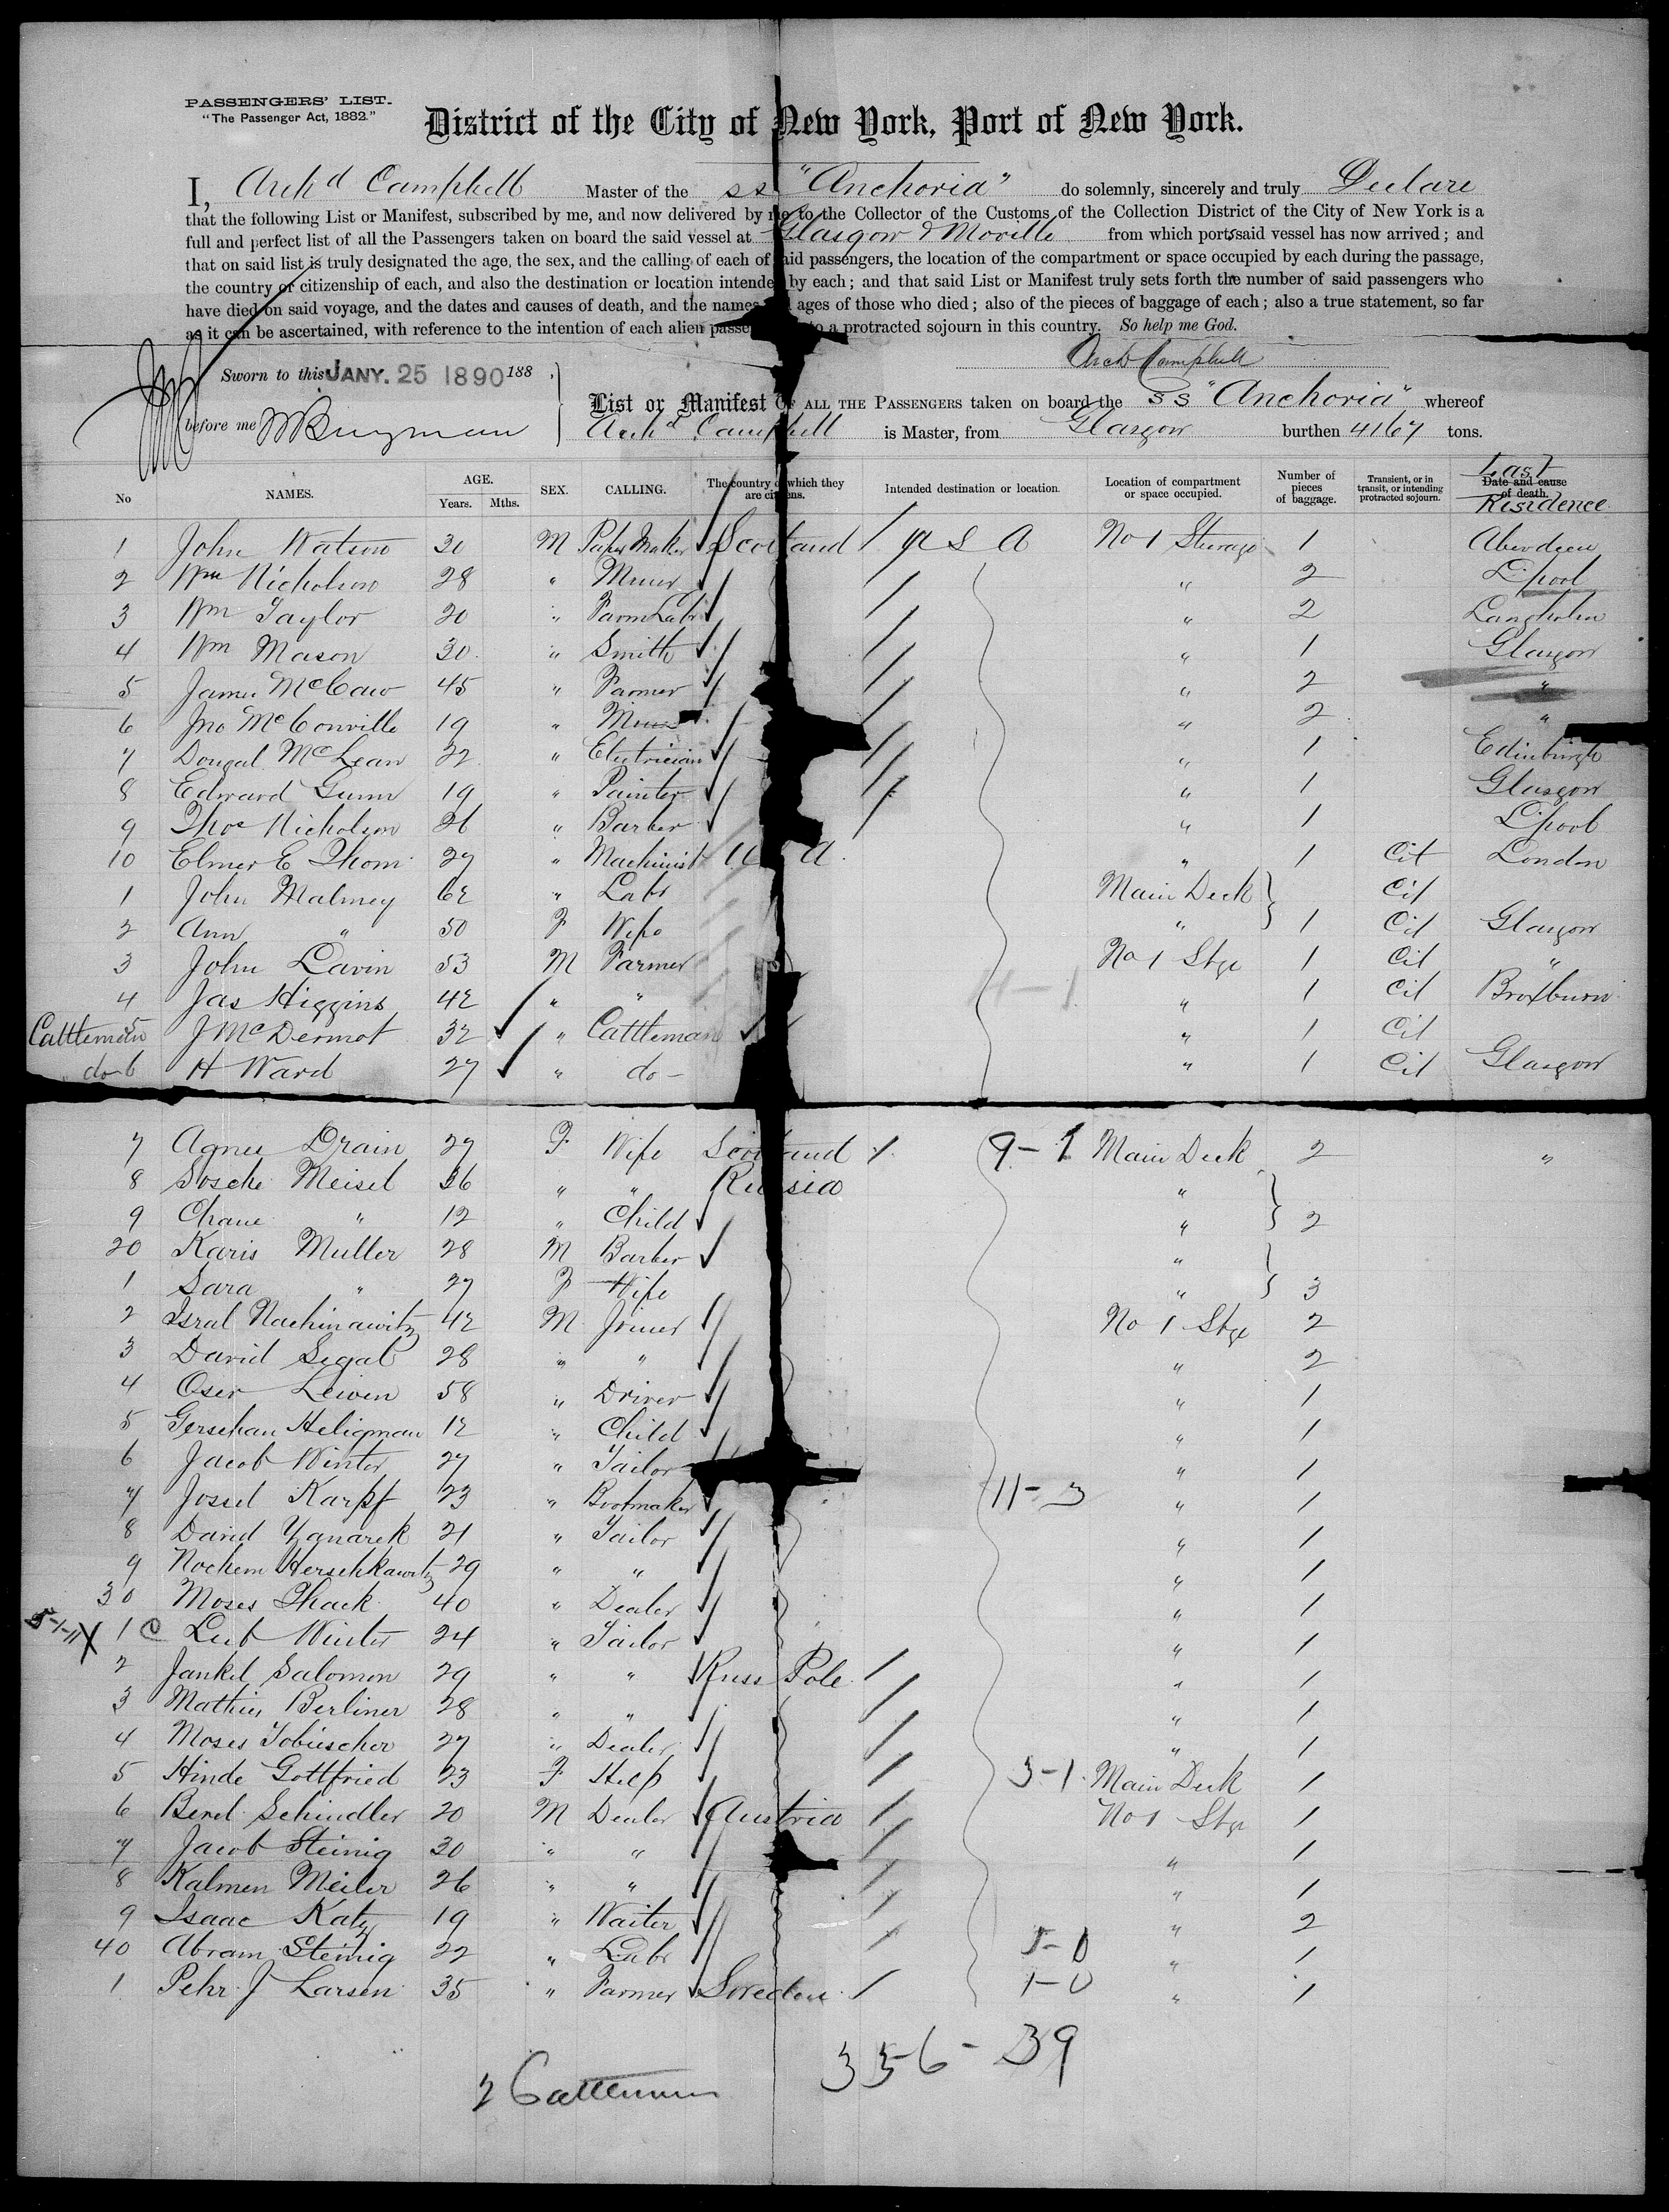 PASSENGERS' LIST.
"The Passenger Act, 1882."
District of the City of New York, Port of New York.
I, Archd Campbell Master of the ss "Anchoria" do solemnly, sincerely and truly Declare
that the following List or Manifest, subscribed by me, and now delivered by me to the Collector of the Customs of the Collection District of the City of New York is a
full and perfect list of all the Passengers taken on board the said vessel at Glasgow & Moville from which ports said vessel has now arrived; and
that on said list is truly designated the age, the sex, and the calling of each of said passengers, the location of the compartment or space occupied by each during the passage,
the country or citizenship of each, and also the destination or location intended by each; and that said List or Manifest truly sets forth the number of said passengers who
have died on said voyage, and the dates and causes of death, and the names ages of those who died; also of the pieces of baggage of each; also a true statement, so far
as it can be ascertained, with reference to the intention of each alien passe to a protracted sojourn in this country. So help me God.
Arch Campbell
Sworn to this JANY. 25 1890 188 ,
List or Manifest OF ALL THE PASSENGERS taken on board the SS "Anchoria" whereof
before me
Archd Campbell is Master, from Glasgow burthen 4167 tons.
No NAMES. AGE. Years. Mths. SEX. CALLING. The country of which they are citizens. Intended destination or location. Location of compartment or space occupied. Number of pieces of baggage. Transient, or in transit, or intending protracted sojourn. Date and cause of death. Last Residence
1 John Watson 30 M Paper Maker Scotland U S A No 1 Steerage 1 Aberdeen
2 Wm Nicholson 28 " Miner " 2 L'pool
3 Wm Taylor 20 " Farm Labr " 2 Langholm
4 Wm Mason 30 " Smith " 1 Glasgow
5 James McCaw 45 " Farmer " 2 "
6 Jno McConville 19 " Miner " 2 "
7 Dougal McLean 22 " Electrician " 1 Edinburgh
8 Edward Gunn 19 " Painter " 1 Glasgow
9 Thos Nicholson 26 " Barber " 1 L'pool
10 Elmer E Thom 27 " Machinist U A " 1 Cit London
1 John Malmey 62 " Labr Main Deck Cit
2 Ann " 50 F Wife " 1 Cit Glasgow
3 John Lavin 53 M Farmer No 1 Stge 1 Cit "
4 Jas Higgins 42 " " 11-1 " 1 Cit Broxburn
Cattleman 5 J McDermot 32 " Cattleman " 1 Cit
do 6 H Ward 27 " do - " 1 Cit Glasgow
7 Agnes Drain 27 F Wife Scotland 9-1 Main Deck 2 "
8 Sosche Meisel 36 " " Russia "
9 Chane " 12 " Child " 2
20 Karis Muller 28 M Barber "
1 Sara " 27 F Wife " 3
2 Isral Nachinawitz 42 M Joiner No 1 Stge 2
3 David Segal 28 " " " 2
4 Oser Leiven 58 " Driver " 1
5 Gerschan Heligman 12 " Child " 1
6 Jacob Winter 27 " Tailor " 1
7 Jossel Karpf 23 " Bootmaker 11-3 " 1
8 David Yanarek 21 " Tailor " 1
9 Nochem Herschkawitz 29 " " " 1
30 Moses Thack 40 " Dealer " 1
5-1-11 X 1 Leib Winter 24 " Tailor " 1
2 Jankel Salomon 29 " " Russ Pole " 1
3 Mathies Berliner 28 " " " 1
4 Moses Tobiescher 27 " Dealer " 1
5 Hinde Gottfried 23 F Help 3-1 Main Deck 1
6 Berel Schindler 20 M Dealer Austria No 1 Stge 1
7 Jacob Steinig 30 " " " 1
8 Kalmen Meiler 26 " " " 1
9 Isaac Katz 19 " Waiter " 2
40 Abram Steinig 22 " Labr 5-0 " 1
1 Pehr J Larsen 35 " Farmer Sweden 1-0 " 1
2 Cattlemen
356-39